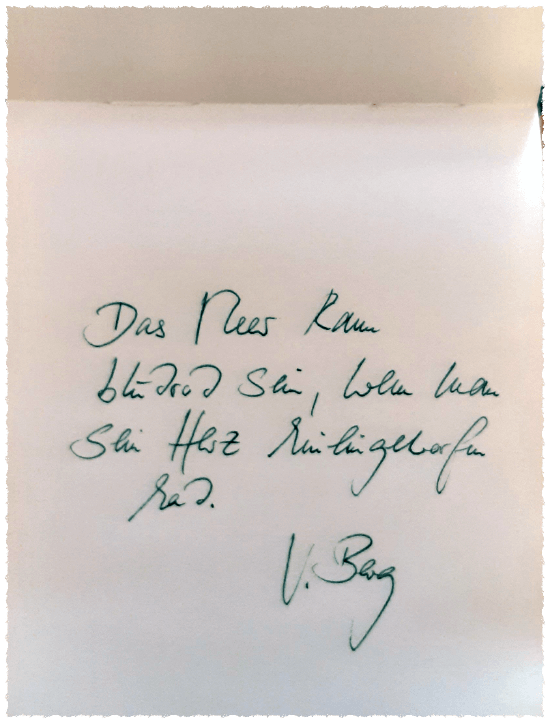 Das Meer kann
blutrot sein, wenn man
sein Herz hineingeworfen
hat.
V. Berg